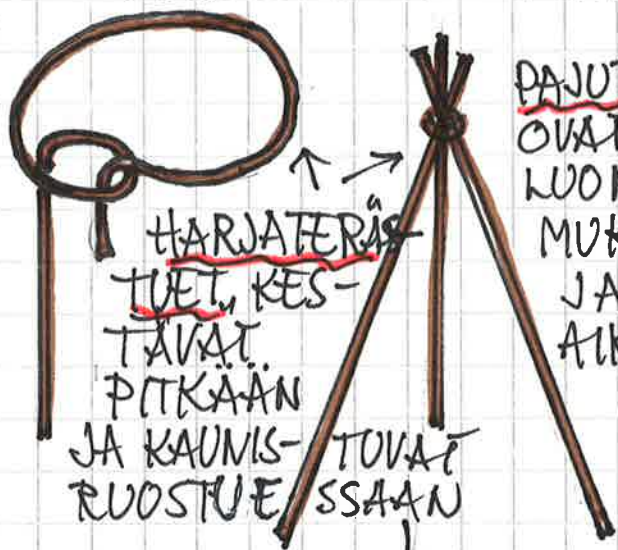 HARJATERÄS-
TUET, KES-
TÄVÄT
PITKÄÄN
JA KAUNIS- TUVAT
RUOSTUESSAAN
PAJUT
OVAT
LUON
MUK
JA
AIK